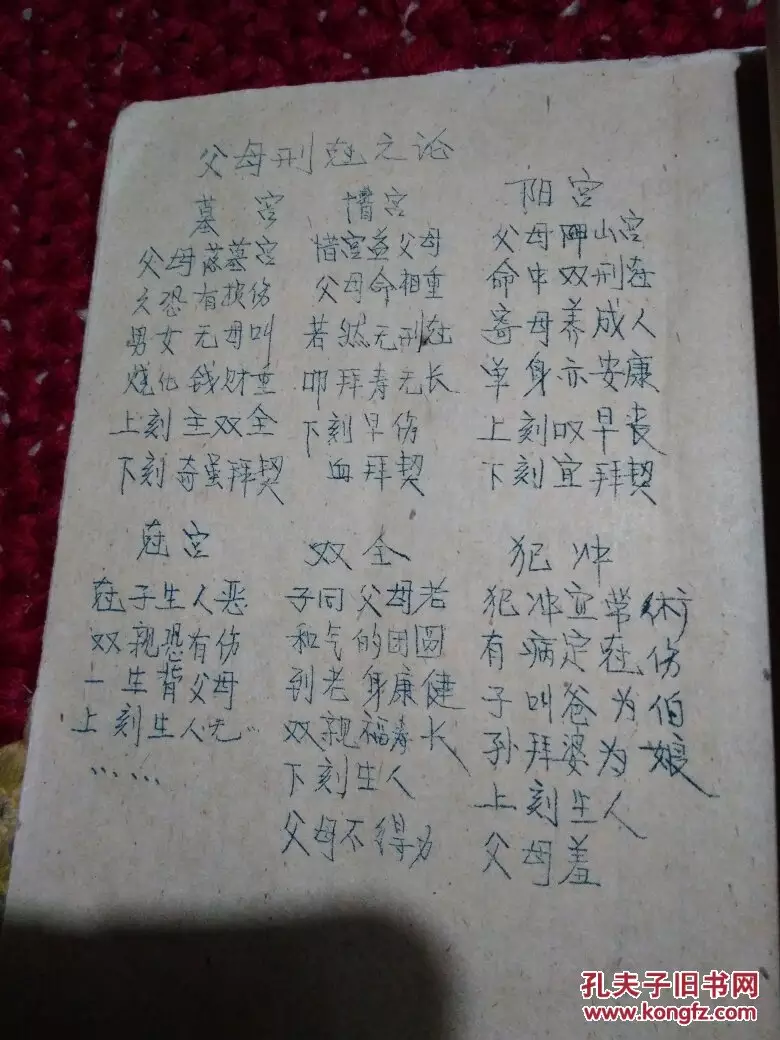 父母刑尅之论
墓宫
父母落墓宫
恐有损伤
男女无母叫
烧化钱财重
上刻主双全
下刻奇蛋拜契
惜宫
惜宫益父母
父母命相重
若然无刑尅
叩拜寿元长
下刻早伤
血拜契
阳宫
父母山宫
命中双刑尅
寄母养成人
单身亦安康
上刻叹早丧
下刻宜拜契
尅宫
尅子生人恶
双亲恐有伤
一生背父母
上刻生人无..
……
双全
子同父母若
和气的团圆
到老身康健
双亲福寿长
下刻生人
父母不得力
犯冲
犯冲宜带术
有病定尅伤
子叫爸为伯
孙拜婆为娘
上刻生人
父母羞
孔夫子旧书网
www.kongfz.com